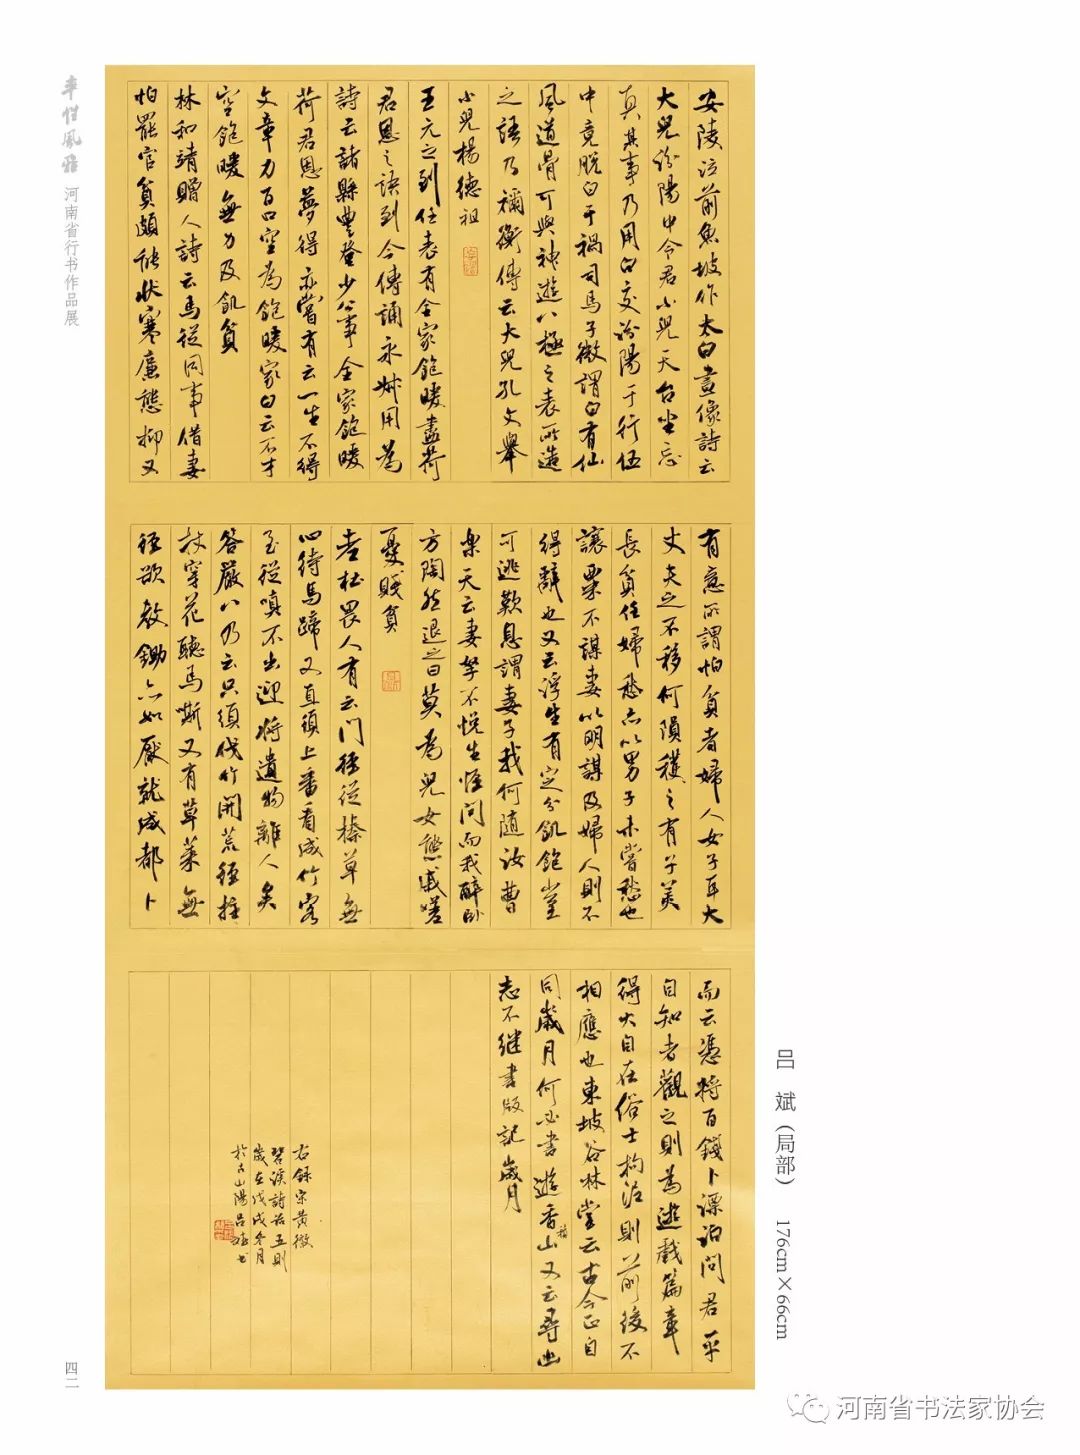 率性风雅 河南省行书作品展
安陵泣前魚坡作太白畫像詩云
大兒汾陽中令君小兒天台坐忘
真其事乃用白交汾陽于行伍
中竟脫白于禍司馬子微謂白有仙
風道骨可與神遊八極之表所造
之語乃禰衡傳云大兒孔文舉
小兒楊德祖
王元之到任表有全家飽暖盡荷
君恩之語到今傳誦永叔用為
詩云諸縣豐登少公事全家飽暖
荷君恩夢得亦嘗有云一生不得
文章力百口空為飽暖家白云不才
空飽暖無力及飢貧
林和靖贈人詩云馬從同事借妻
怕罷官貧頗能狀寒廉態抑又
有意所謂怕貧者婦人女子耳大
丈夫之不移何隕穫之有子美
長貧任婦愁亦以男子未嘗愁也
讓粟不謀妻以明謀及婦人則不
得辭也又云浮生有定分飢飽豈
可逃歎息謂妻子我何随汝曹
樂天云妻孥不悅生怪问而我醉卧
方陶然退之曰莫為兒女態戚嗟
憂賤貧
老杜畏人有云门徑從榛草無
心待馬蹄又直須上番看成竹客
至從嗔不出迎将遺物離人矣
答嚴八乃云只須伐竹開荒徑拄
杖穿花聽馬嘶又有草萊無
徑欲教鋤亦如厭就成都卜
而云憑将百錢卜漂泊問君平
自知者觀之則為遊戲篇章
得大自在俗士拘泥則前後不
相應也東坡谷林堂云古今正自
同歲月何必書遊香積山又云尋幽
志不继書版記歲月
右録宋黄徹
䂬溪詩话五則
歲在戊戌冬月
於古山陽吕斌书
吕 斌（局部） 176cm×66cm
四二
河南省书法家协会